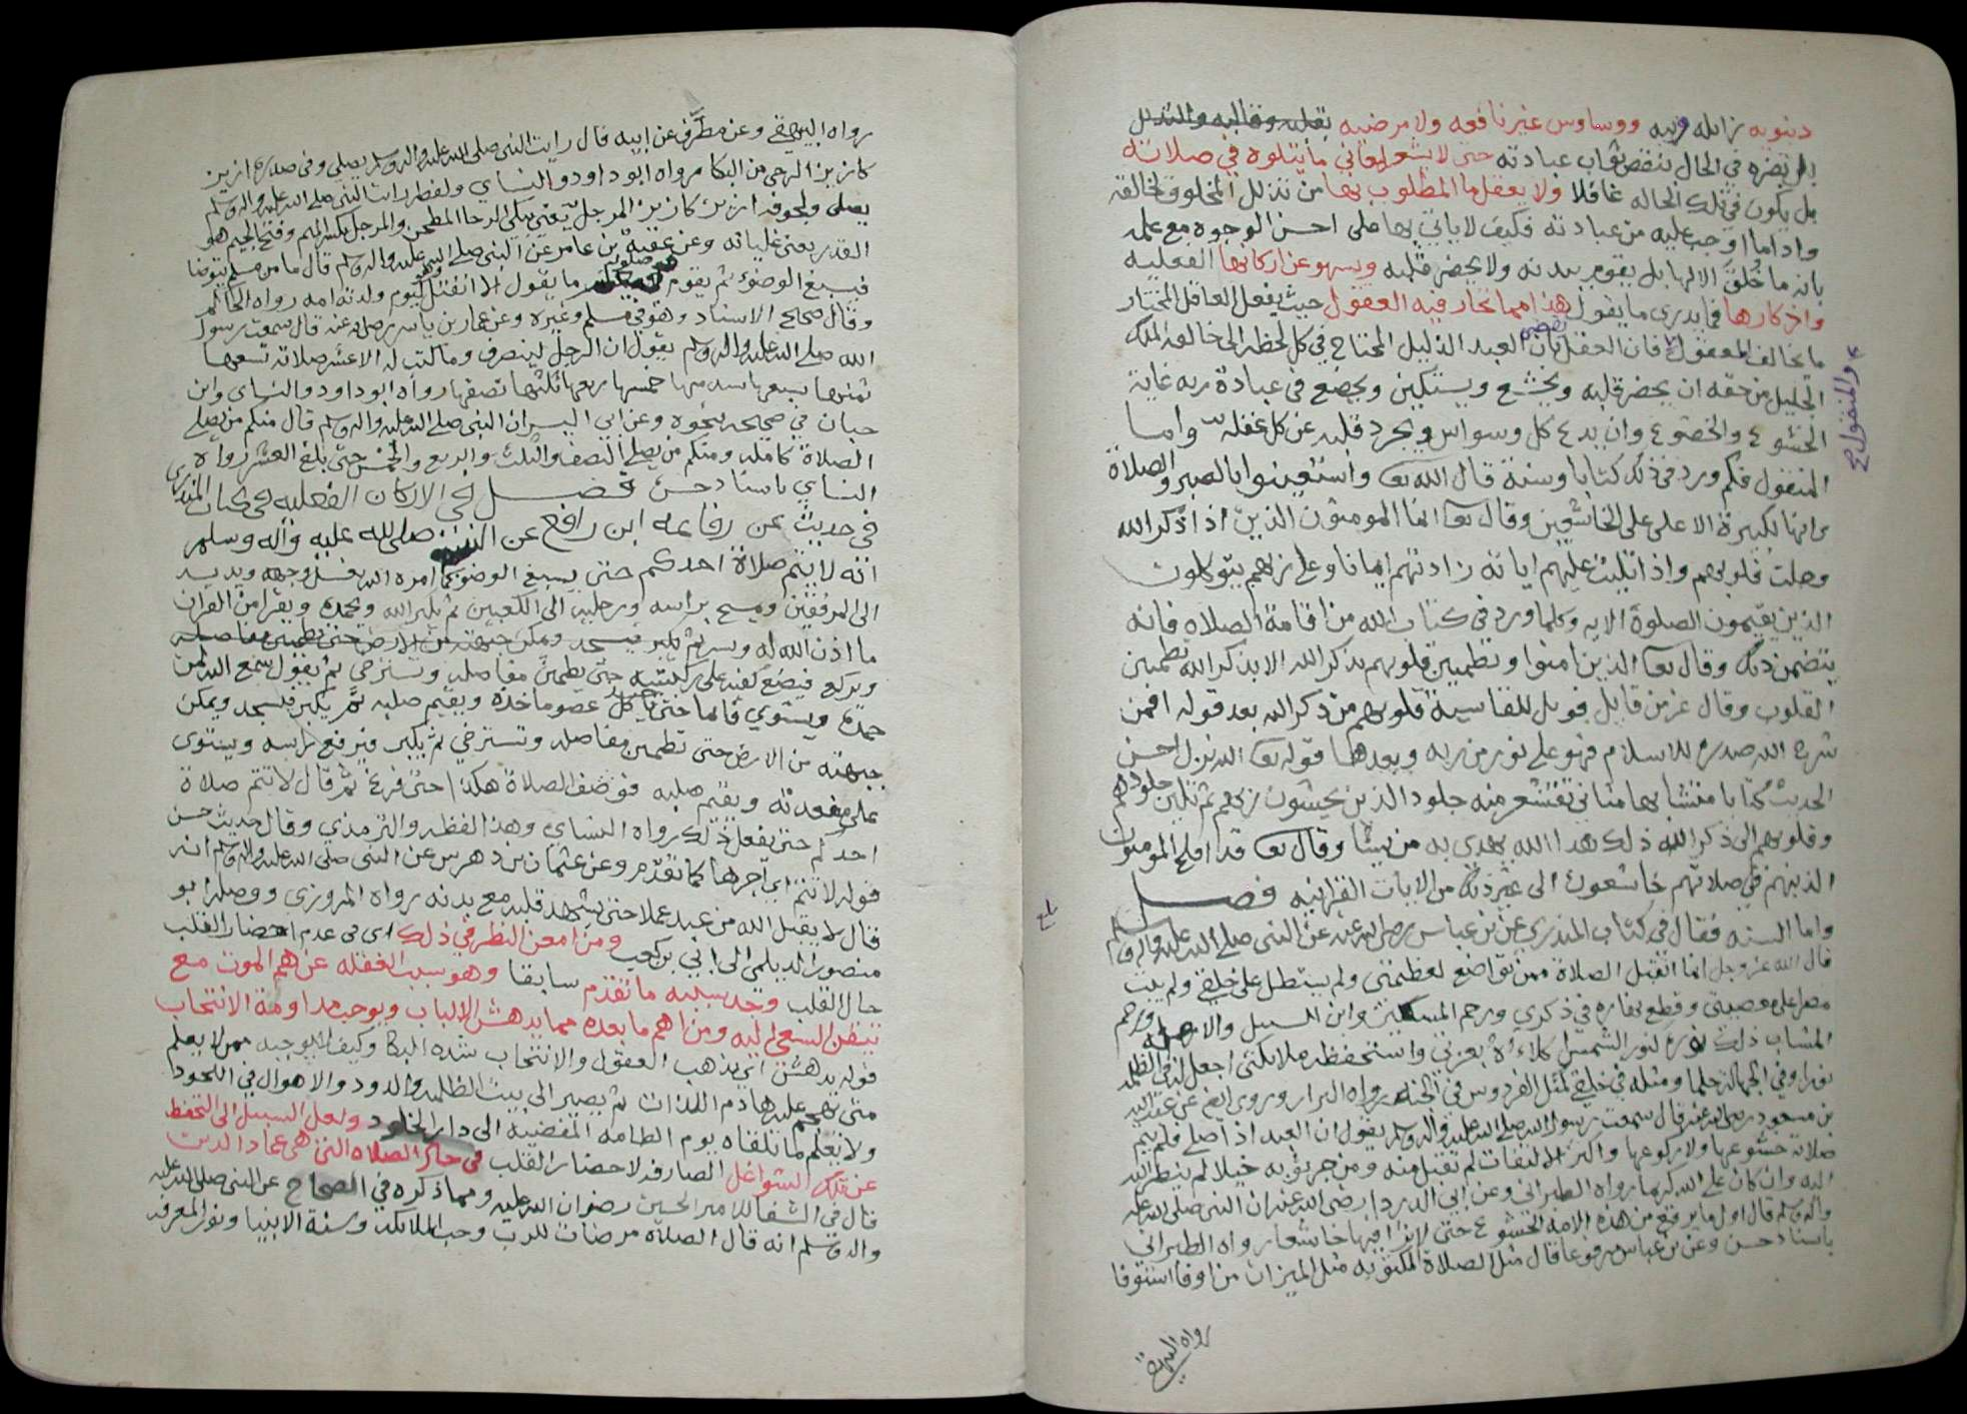 دنيويه زايله فنيه ووساوس غير نافعه ولا مرضيه بقلبه وقالبه والتذلل
بل بضره في الحال بنقص ثواب عبادته حتى لا يشعر بمعاني ما يتلوه في صلاته
بل يكون في تلك الحاله غافلا ولا يعقل ما المطلوب بها من تذلل المخلوق لخالقه
واداما اوجب عليه من عبادته فكيف لا ياتي بها على احسن الوجوه مع علمه
بانه ما خُلق الا لها بل يقوم ببدنه ولا يحضر قلبه ويسهو عن اركانها الفعليه
واذكارها فما يدري ما يقول هذا مما تحار فيه العقول حيث يفعل العاقل المختار
ما يخالف المعقول فان العقل يقضي بان العبد الذليل المحتاج في كل لحظه الى خالقه الملك
والمنقول صح
الجليل من حقه ان يحضر قلبه ويخشع ويستكين ويخضع في عبادة ربه غاية
الخشوع والخضوع وان يدع كل وسواس ويجرد قلبه عن كل غفله واما
المنقول فكم ورد في ذلك كتابا وسنة قال الله تعا واستعينوا بالصبر والصلاة
وانها لكبيرة الا على على الخاشعين وقال تعا انما المومنون الذين اذا ذكر الله
وجلت قلوبهم واذا تليت عليهم اياته زادتهم ايمانا وعلى ربهم يتوكلون
الذين يقيمون الصلوة الايه وكلما ورد في كتاب الله من اقامة الصلاه فانه
يتضمن ذلك وقال تعا الذين امنوا وتطمين قلوبهم بذكر الله الا بذكر الله تطمين
القلوب وقال عز من قايل فويل للقاسية قلوبهم من ذكر الله بعد قوله افمن
شرح الله صدره للاسلام فهو على نور من ربه وبعدها قوله تعا الله نزل احسن
الحديث كتابا متشابها مثاني تقشعر منه جلود الذين يخشون ربهم ثم تلين جلودهم
وقلوبهم الى ذكر الله ذلك هدا الله يهدي به من يشا وقال تعا قد افلح المومنون
الذينهم في صلاتهم خاشعون الى غير ذلك من الايات القرانيه فصل
واما السنه فقال في كتاب المنذري عن بن عباس رضي الله عنه عن النبي صلى الله عليه واله وسلم
قال الله عز وجل انما اتقبل الصلاة ممن تواضع لعظمتي ولم يستطل على خلقي ولم يبت
مصرا على معصيتي وقطع نهاره في ذكري ورحم المسكين وابن السبيل والارمله ورحم
المصاب ذلك نوره كنور الشمس اكلاءه بعزتي واستحفظه ملايكتي اجعل له في الظلمه
نورا وفي الجهالة حلما ومثله في خلقي كمثل الفردوس في الجنه رواه البزار وروي ايض عن عبد الله
بن مسعود رضي الله عنه قال سمعت رسول الله صلى الله عليه واله وسلم يقول ان العبد اذا صلى فلم يتم
صلاته خشوعها ولا ركوعها واكثر الالتفات لم تقبل منه ومن جر ثوبه خيلا لم ينظر الله
اليه وان كان على الله كريما رواه الطبراني وعن ابي الدردا رضي الله عنه ان النبي صلى الله عليه
واله وسلم قال اول ما يرفع من هذه الامه الخشوع حتى لا ترا فيها خاشعا رواه الطبراني
باسناد حسن وعن بن عباس مرفوعا قال مثل الصلاة المكتوبه مثل الميزان من اوفا استوفا
رواه البيهقي
رواه البيهقي وعن مطرّف عن ابيه قال رايت النبي صلى الله عليه واله وسلم يصلي وفي صدره ازيز
كازيز الرحى من البكا رواه ابو داود والنساي ولفظه رايت النبي صلى الله عليه واله وسلم
يصلي ولجوفه ازيز كازيز المرجل يعني يبكي الرحا المطحن والمرجل بكسر الميم وفتح الجيم هو
القدر يعني غليانه وعن عقبة بن عامر عن النبي صلى الله عليه واله وسلم قال ما من مسلم يتوضا
فيسبغ الوضوء ثم يقوم في صلوته فيعلم ما يقول الا انفتل وهو كيوم ولدته امه رواه الحاكم
وقال صحيح الاسناد وهو في مسلم وغيره وعن عمار بن ياسر رضي الله عنه قال سمعت رسول
الله صلى الله عليه واله وسلم يقول ان الرجل لينصرف وما كتب له الا عشر صلاته تسعها
ثمنها سبعها سدسها خمسها ربعها ثلثها نصفها رواه ابو داود والنساي وابن
حبان في صحيحه بنحوه وعن ابي اليسر ان النبي صلى الله عليه واله وسلم قال منكم من يصلي
الصلاة كامله ومنكم من يصلي النصف والثلث والربع والخمس حتى بلغ العشر رواه
النساي باسناد حسن فصل في الاركان الفعليه في كتاب المنذري
في حديث عن رفاعه ابن رافع عن النبي صلى الله عليه وآله وسلم
انه لا يتم صلاة احدكم حتى يسبغ الوضو كما امره الله يغسل وجهه ويديه
الى المرفقين ويمسح براسه ورجليه الى الكعبين ثم يكبر الله ويحمده ويقرا من القران
ما اذن الله له ويسر ثم يكبر فيسجد ويمكن جبهته من الارض حتى تطمين مفاصله
ويركع فيضع كفيه على ركبتيه حتى تطمين مفاصله وتسترخي ثم يقول سمع الله لمن
حمده ويستوي قائما حتى ياخذ كل عضو ماخذه ويقيم صلبه ثم يكبر فيسجد ويمكن
جبهته من الارض حتى تطمين مفاصله وتسترخي ثم يكبر فيرفع راسه ويستوي
على مقعدته ويقيم صلبه فوصف الصلاة هكذا حتى فرغ ثم قال لا تتم صلاة
احدكم حتى يفعل ذلك رواه النساي وهذا لفظه والترمذي وقال حديث حسن
قوله لا تتم اي اجرها كما تقدم وعن عثمان بن دهرس عن النبي صلى الله عليه واله وسلم انه
قال لا يقبل الله من عبد عملا حتى يشهد قلبه مع بدنه رواه المروزي ووصله ابو
منصور الديلمي الى ابي بن كعب ومن امعن النظر في ذلك اى في عدم احضار القلب
حال القلب وجد سببه ما تقدم سابقا وهو سبب الغفله عن هم الموت مع
تيقن السعي اليه ومن اهم ما بعده مما يدهش الالباب ويوجب مداومة الانتحاب
قوله يدهش اي يذهب العقول والانتحاب شدة البكا وكيف لا يوجبه ممن لا يعلم
متى تهجم عليه هاذم اللذات ثم يصير الى بيت الظلمه والدود والاهوال في اللحود
ولا يعلم لما تلقاه يوم الطامه المفضيه الى دار الخلود ولعل السبيل الى التحفظ
عن تلك الشواغل الصارفه لاحضار القلب في حال الصلاه التي هي عماد الدين
قال في الشفا للامير الحسين رضوان الله عليه ومما ذكره في الصحاح عن النبي صلى الله عليه
واله وسلم انه قال الصلاة مرضات للرب وحب الملايكه وسنة الانبيا ونور المعرفه